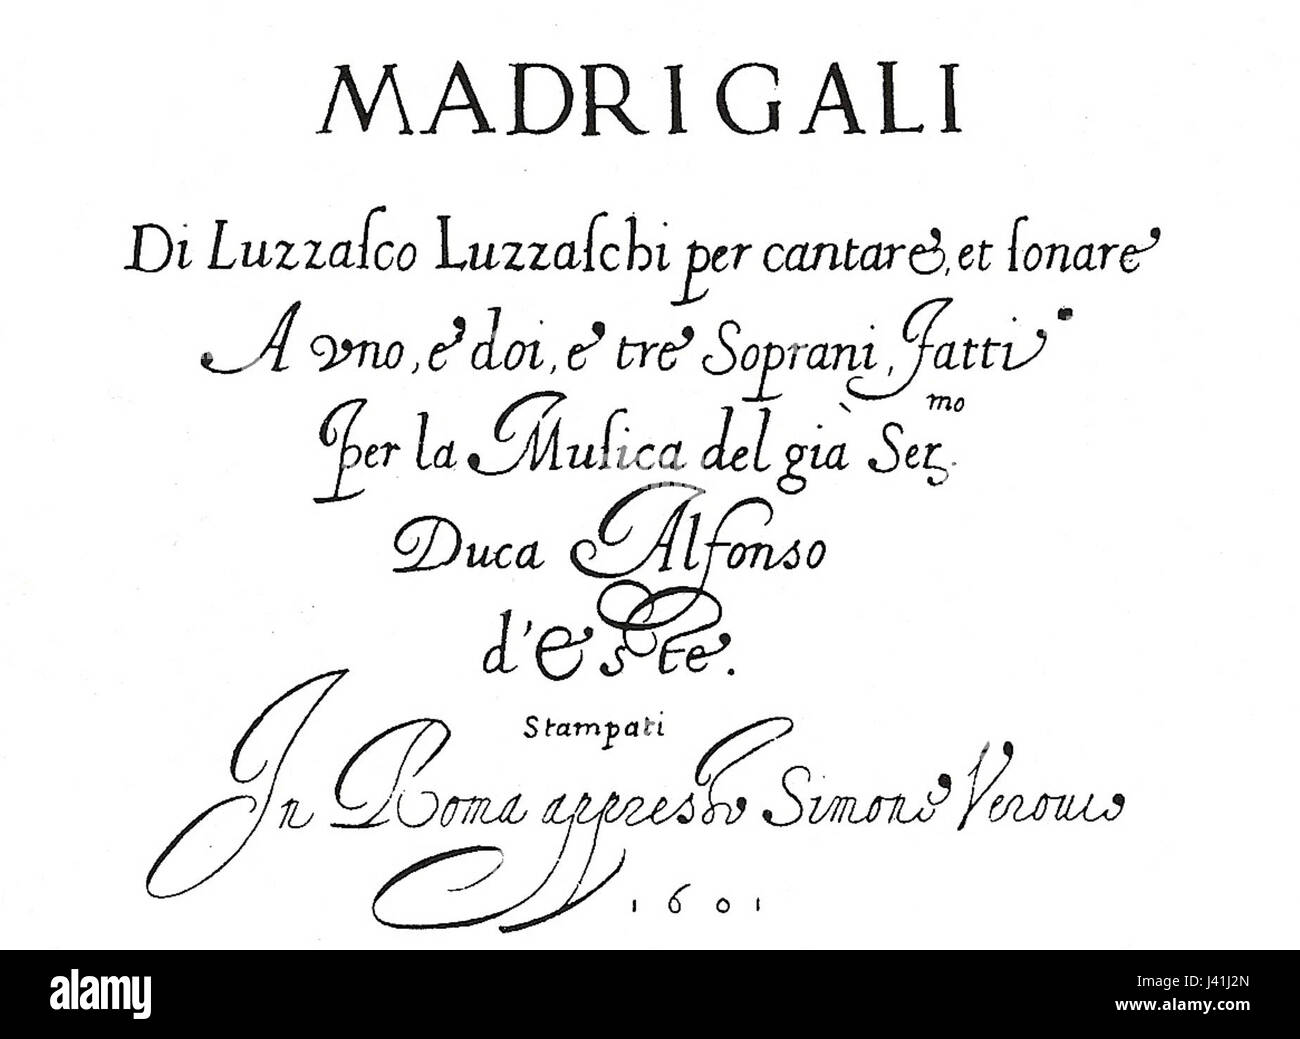 MADRIGALI
Di Luzzaſco Luzzaſchi per cantare, et ſonare
A vno, e doi, e tre Soprani, Fatti
Per la Muſica del già Ser.mo
Duca Alfonso
d'Este.
Stampati
In Roma appresso Simone Verouio
1601
alamy
Image ID: J41J2N
www.alamy.com